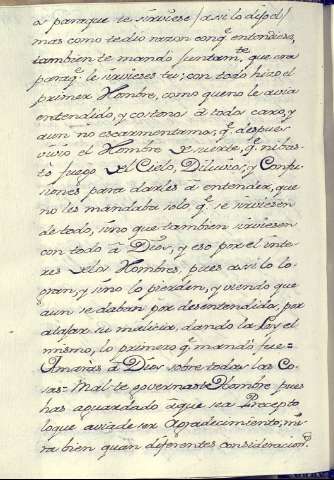 ò paraque te sirviese /assi lo dispo/
mas como te dio razon conq̃ entendiese,
tambien te mando /untam.te que era
paraq̃ le sirvieses tu; con todo hizo el
primer Hombre, como queno le avia
entendido, y costonos â todos caro, y
aun no escarmentamos, q̃ despues
vivio el Hombre de suerte, q̃ ni bas-
tò fuego del Cielo, Diluvios, y Confu-
siones para darles â entender, que
no les mandaba solo q̃ se sirviesen
de todo, sino que tambien sirviesen
con todo â Dios, y eso por el inte-
res de los Hombres, pues assi lo lo-
gran, y sino lo pierden, y viendo que
aun se daban por desentendidos, por
atajar su malicia, dando la Ley el
mismo, lo primero q̃ mandò fue=
Amaràs â Dios sobre todas las Co-
sas= Mal te governaste Hombre pues
has aguardado âque sea Precepto
loque avia de ser Agradecimiento; mi-
ra bien quan diferentes consideracion.s